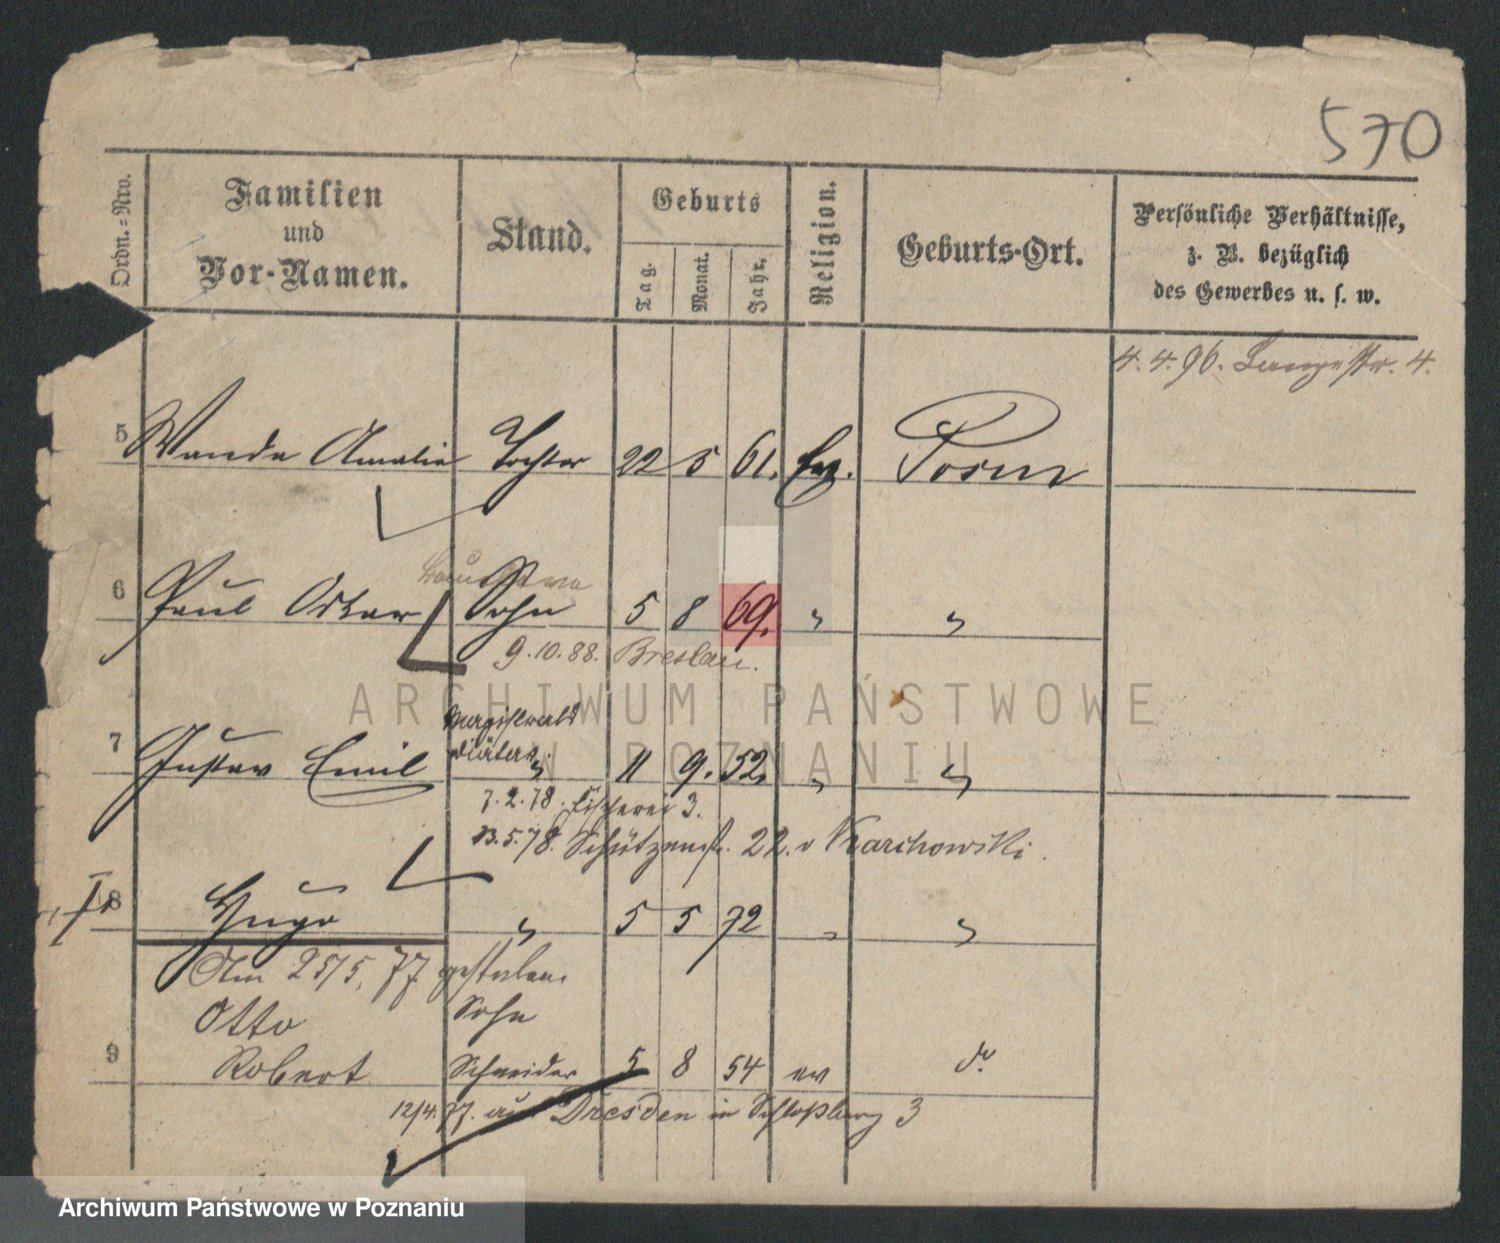 570
Ordn.-Nro.
Familien
und
Vor-Namen.
Stand.
Geburts
Tag.
Monat.
Jahr.
Religion.
Geburts-Ort.
Persönliche Verhältnisse,
z. B. bezüglich
des Gewerbes u. s. w.
4. 4. 96. Langestr. 4.
5 Wanda Amalie Tochter 22 5 61. Ev. Posen
6 Paul Oskar Sohn 5 8 69. " "
9.10.88. Breslau.
Magistrats
7 Gustav Emil Diätar " 11 9. 52. " "
7.2.78. Fischerei 3.
13.5.78. Schützenstr. 22. v Karchowski.
8 Hugo " 5 5 72 " "
Am 25/5. 77 gestorben
Otto Sohn
9 Robert Schneider 5 8 54 ev do
12/4.77. aus Dresden in Schloßberg 3
ARCHIWUM PAŃSTWOWE
W POZNANIU
Archiwum Państwowe w Poznaniu